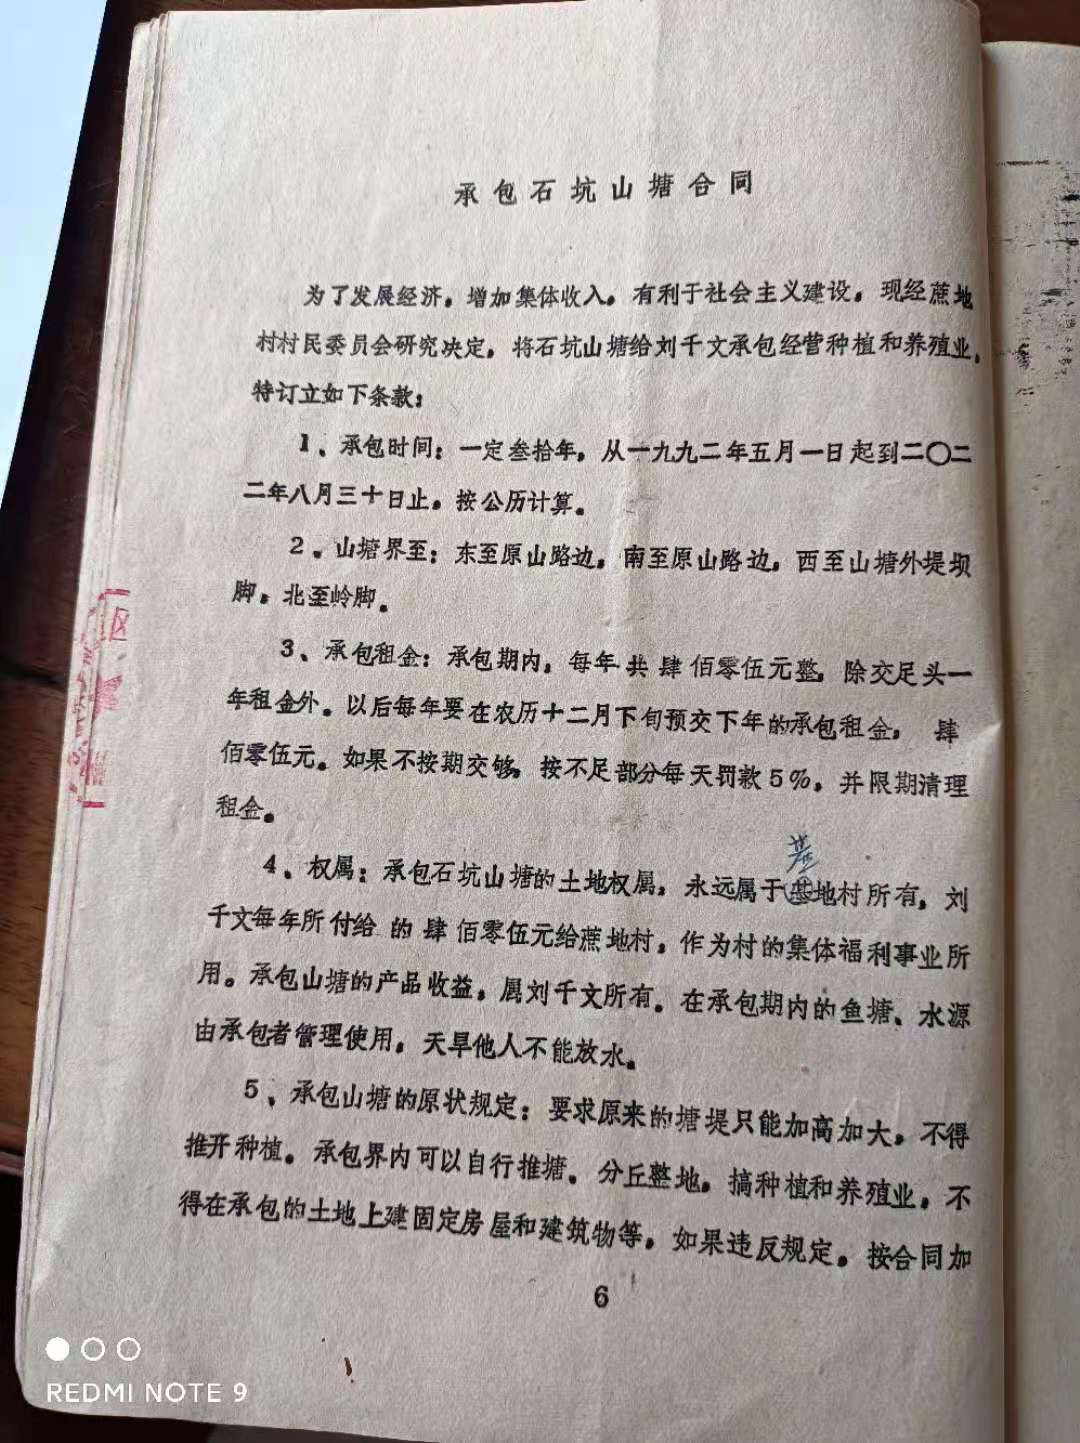 承包石坑山塘合同
为了发展经济，增加集体收入，有利于社会主义建设，现经蔗地
村村民委员会研究决定，将石坑山塘给刘千文承包经营种植和养殖业，
特订立如下条款：
1、承包时间：一定叁拾年，从一九九二年五月一日起到二〇二
二年八月三十日止，按公历计算。
2。山塘界至：东至原山路边，南至原山路边，西至山塘外堤坝
脚，北至岭脚。
3、承包租金：承包期内，每年共肆佰零伍元整，除交足头一
年租金外。以后每年要在农历十二月下旬预交下年的承包租金，肆
佰零伍元。如果不按期交够，按不足部分每天罚款5%，并限期清理
租金。
4、权属：承包石坑山塘的土地权属，永远属于蔗地村所有，刘
千文每年所付给的肆佰零伍元给蔗地村，作为村的集体福利事业所
用。承包山塘的产品收益，属刘千文所有。在承包期内的鱼塘、水源
由承包者管理使用，天旱他人不能放水。
5、承包山塘的原状规定：要求原来的塘堤只能加高加大，不得
推开种植。承包界内可以自行推塘。分丘整地，搞种植和养殖业，不
得在承包的土地上建固定房屋和建筑物等，如果违反规定。按合同加
6
区
REDMI NOTE 9